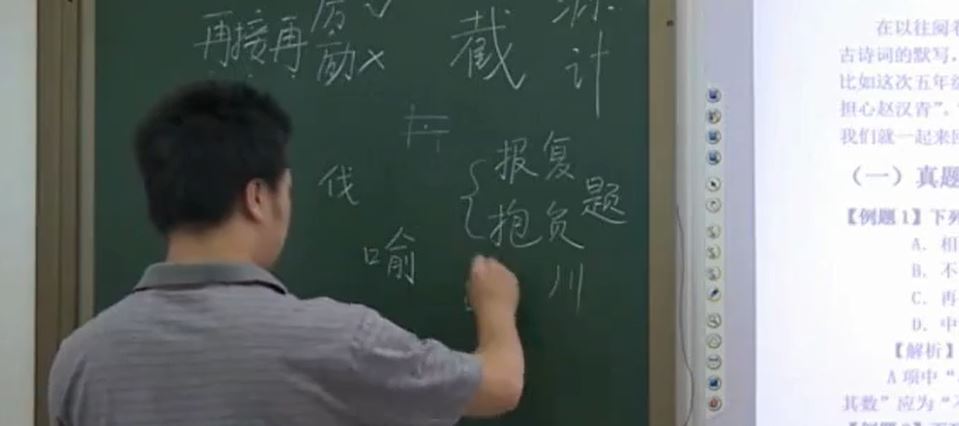 再接再厉✓
励×
截
计
伐
报复
抱负
题
喻
川
在以往阅
古诗词的默写,
比如这次五年
担心赵汉青”。
我们就一起来
（一）真题
【例题1】下列
A. 相
B. 不
C. 再
D. 中
【解析】
A项中“
其数”应为“